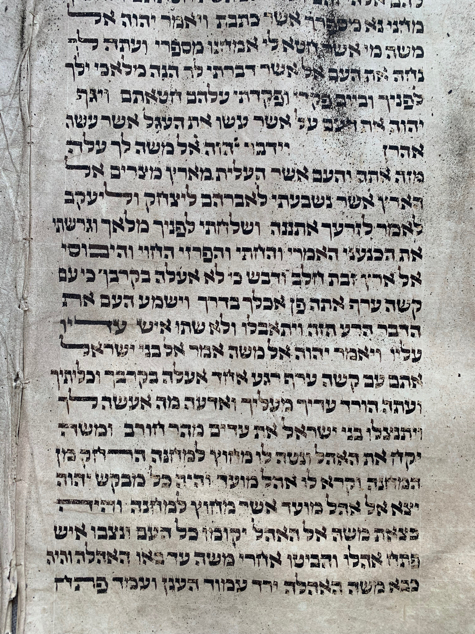 מחני נא מספרך אשר כתבת ויאמר יהוה אל
משה מי אשר חטא לי אמחנו מספרי ועתה לך
נחה את העם אל אשר דברתי לך הנה מלאכי ילך
לפניך וביום פקדי ופקדתי עלהם חטאתם ויגף
יהוה את העם על אשר עשו את העגל אשר עשה
אהרן וידבר יהוה אל משה לך עלה
מזה אתה והעם אשר העלית מארץ מצרים אל
הארץ אשר נשבעתי לאברהם ליצחק וליעקב
לאמר לזרעך אתננה ושלחתי לפניך מלאך וגרשתי
את הכנעני האמרי והחתי והפרזי החוי והיבוסי
אל ארץ זבת חלב ודבש כי לא אעלה בקרבך כי עם
קשה ערף אתה פן אכלך בדרך וישמע העם את
הדבר הרע הזה ויתאבלו ולא שתו איש עדיו
עליו ויאמר יהוה אל משה אמר אל בני ישראל
אתם עם קשה ערף רגע אחד אעלה בקרבך וכליתיך
ועתה הורד עדיך מעליך ואדעה מה אעשה לך
ויתנצלו בני ישראל את עדים מהר חורב ומשה
יקח את האהל ונטה לו מחוץ למחנה הרחק מן
המחנה וקרא לו אהל מועד והיה כל מבקש יהוה
יצא אל אהל מועד אשר מחוץ למחנה והיה
כצאת משה אל האהל יקומו כל העם ונצבו איש
פתח אהלו והביטו אחרי משה עד באו האהלה והיה
כבא משה האהלה ירד עמוד הענן ועמד פתח